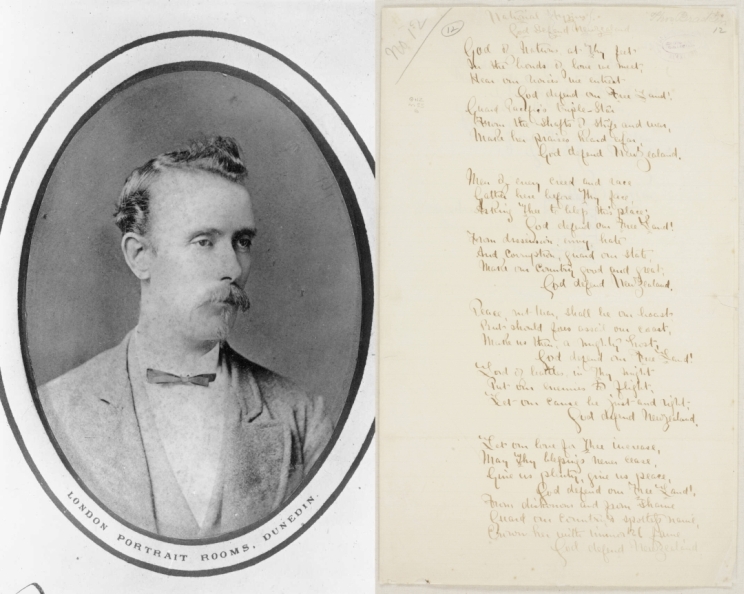 LONDON PORTRAIT ROOMS, DUNEDIN.
12
12
National Hymn
God defend New Zealand
God of Nations at Thy feet
In the bonds of love we meet,
Hear our voices we entreat
God defend our Free Land!
Guard Pacific's triple Star
From the shafts of strife and war,
Make her praises heard afar,
God defend New Zealand.
Men of every creed and race
Gather here before Thy face,
Asking Thee to bless this place,
God defend our Free Land!
From dissension, envy, hate
And corruption, guard our state,
Make our country good and great,
God defend New Zealand.
Peace, not War, shall be our boast,
But should foes assail our coast,
Make us then a mighty host,
God defend our Free Land!
Lord of battles in Thy might
Put our enemies to flight,
Let our cause be just and right,
God defend New Zealand.
Let our love for Thee increase,
May Thy blessings never cease,
Give us plenty, give us peace,
God defend our Free Land!
From dishonour and from shame
Guard our Country's spotless name,
Crown her with immortal fame
God defend New Zealand